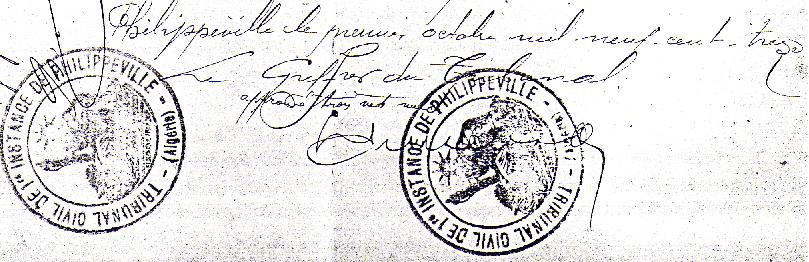 Philippeville le premier octobre mil neuf cent treize
Le Greffier du Tribunal
TRIBUNAL CIVIL DE 1re INSTANCE DE PHILIPPEVILLE - (Algérie) -
TRIBUNAL CIVIL DE 1re INSTANCE DE PHILIPPEVILLE - (Algérie) -